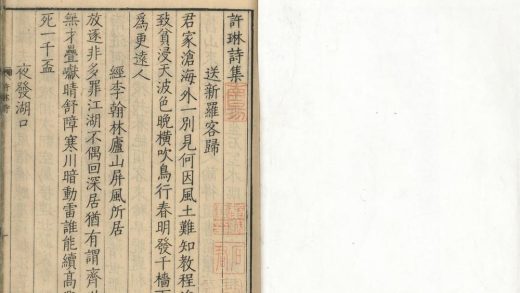 許琳詩集
送新羅客歸
君家滄海外一別見何因風土雖知教程
致貧浸天波色晚橫吹鳥行春明發千檣下
爲更遠人
經李翰林廬山屏風所居
放逐非多罪江湖不偶回深居猶有謂齊
無才疊巘晴舒障寒川暗動雷誰能續高
死一千盃
夜發湖口
許琳詩